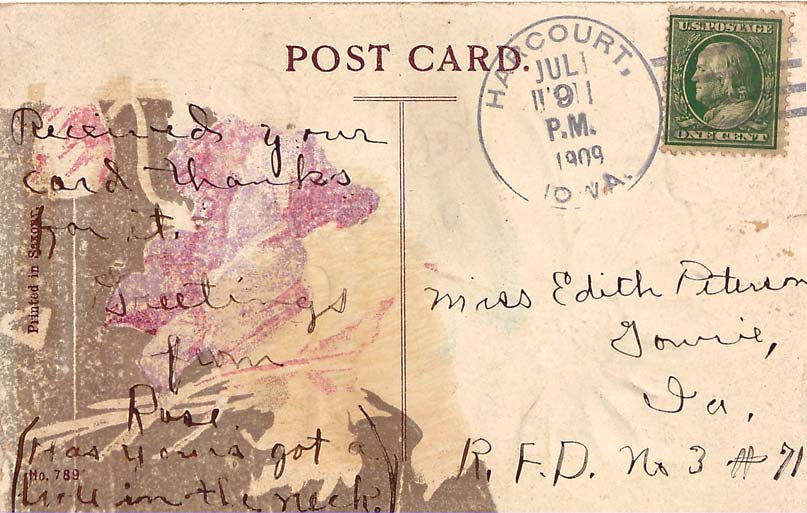 POST CARD.
HARCOURT,
JUL
9
P.M.
1909
IOWA.
U.S. POSTAGE
ONE CENT
Received your
card thanks
for it.
Greetings
from
Rose.
(Has yours got a
in the neck.)
Printed in Saxony
No. 789
Miss Edith Peterson
Gowrie,
Ia.
R. F. D. No 3 # 71